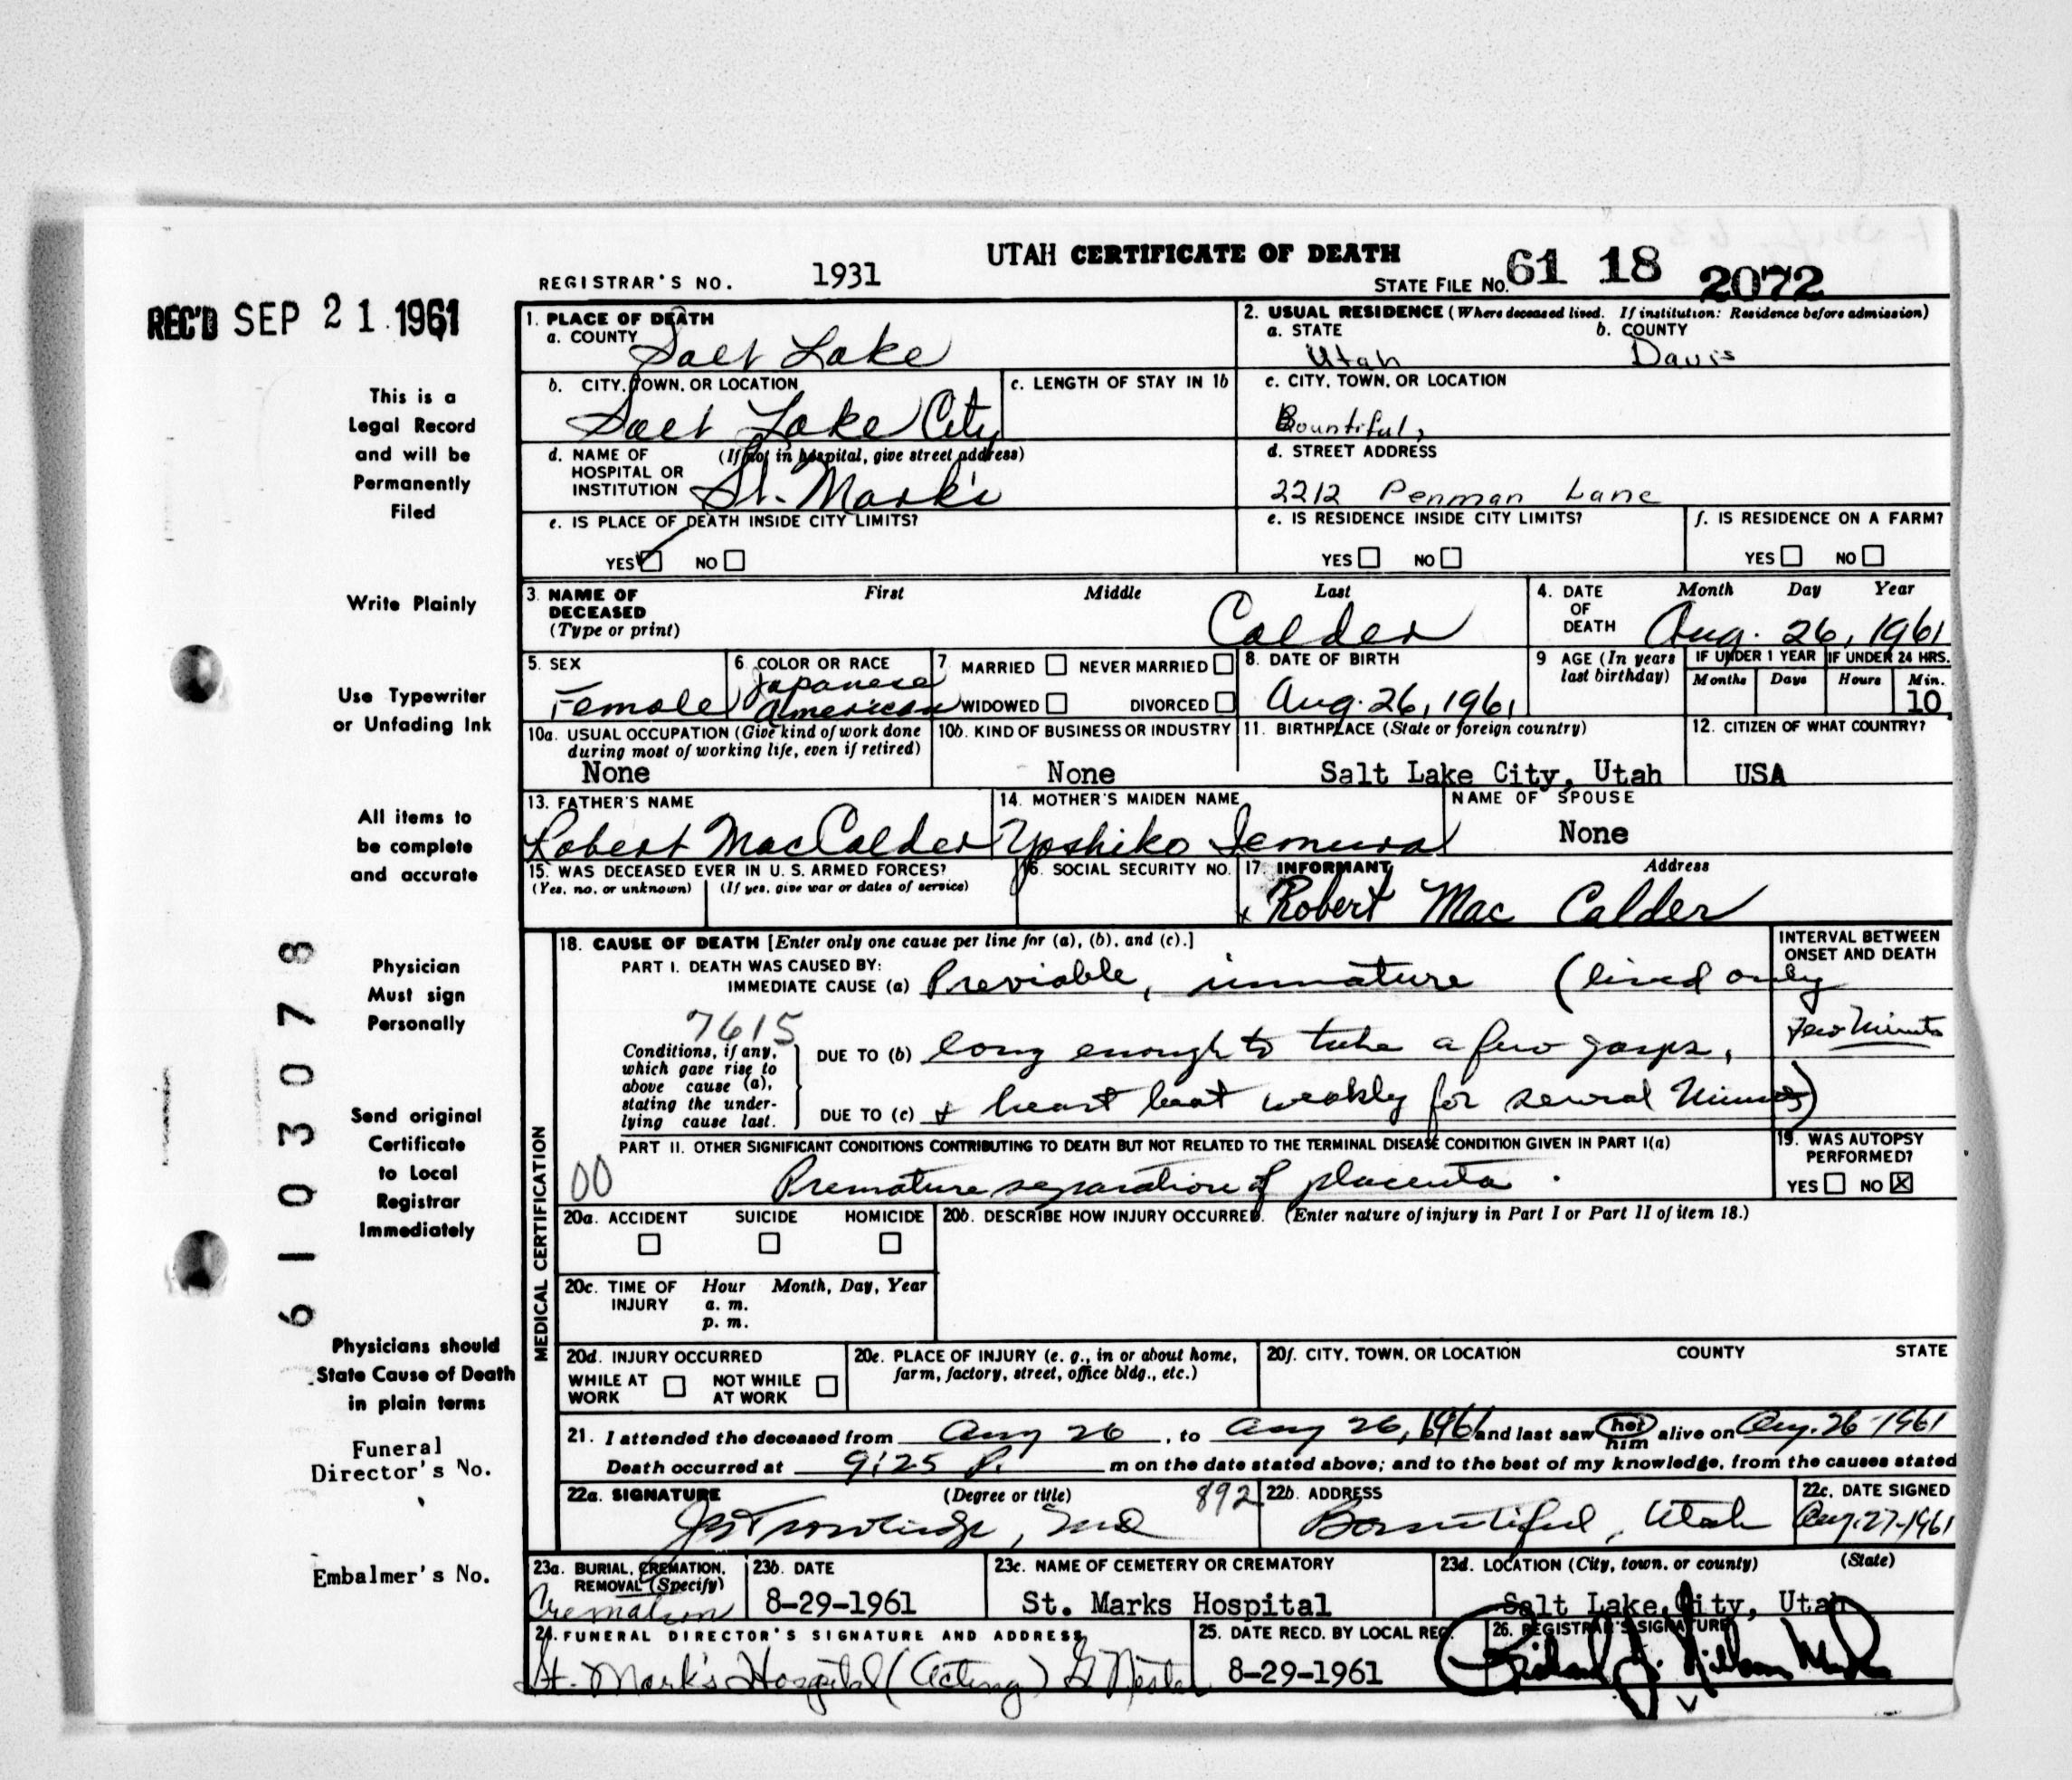 UTAH CERTIFICATE OF DEATH
REGISTRAR'S NO. 1931
STATE FILE NO. 61 18 2072
REC'D SEP 21 1961
This is a
Legal Record
and will be
Permanently
Filed
Write Plainly
Use Typewriter
or Unfading Ink
All items to
be complete
and accurate
Physician
Must sign
Personally
Send original
Certificate
to Local
Registrar
Immediately
Physicians should
State Cause of Death
in plain terms
Funeral
Director's No.
Embalmer's No.
6103078
1. PLACE OF DEATH
a. COUNTY
Salt Lake
2. USUAL RESIDENCE (Where deceased lived. If institution: Residence before admission)
a. STATE
Utah
b. COUNTY
Davis
b. CITY, TOWN, OR LOCATION
Salt Lake City
c. LENGTH OF STAY IN 1b
c. CITY, TOWN, OR LOCATION
Bountiful,
d. NAME OF HOSPITAL OR INSTITUTION
(If not in hospital, give street address)
St. Mark's
d. STREET ADDRESS
2212 Penman Lane
e. IS PLACE OF DEATH INSIDE CITY LIMITS?
YES NO
e. IS RESIDENCE INSIDE CITY LIMITS?
YES NO
f. IS RESIDENCE ON A FARM?
YES NO
3. NAME OF DECEASED
(Type or print)
First Middle Last
Calder
4. DATE OF DEATH
Month Day Year
Aug. 26, 1961
5. SEX
Female
6. COLOR OR RACE
Japanese
American
7. MARRIED NEVER MARRIED
WIDOWED DIVORCED
8. DATE OF BIRTH
Aug. 26, 1961
9 AGE (In years last birthday)
IF UNDER 1 YEAR
Months Days
IF UNDER 24 HRS.
Hours Min.
10
10a. USUAL OCCUPATION (Give kind of work done during most of working life, even if retired)
None
10b. KIND OF BUSINESS OR INDUSTRY
None
11. BIRTHPLACE (State or foreign country)
Salt Lake City, Utah
12. CITIZEN OF WHAT COUNTRY?
USA
13. FATHER'S NAME
Robert Mac Calder
14. MOTHER'S MAIDEN NAME
Yoshiko Iemura
NAME OF SPOUSE
None
15. WAS DECEASED EVER IN U. S. ARMED FORCES?
(Yes, no, or unknown) (If yes, give war or dates of service)
16. SOCIAL SECURITY NO.
17. INFORMANT Address
x Robert Mac Calder
MEDICAL CERTIFICATION
18. CAUSE OF DEATH [Enter only one cause per line for (a), (b), and (c).]
INTERVAL BETWEEN ONSET AND DEATH
PART I. DEATH WAS CAUSED BY:
IMMEDIATE CAUSE (a) Previable, immature (lived only
7615
Conditions, if any, which gave rise to above cause (a), stating the underlying cause last.
DUE TO (b) long enough to take a few gasps,
Few Minutes
DUE TO (c) & heart beat weakly for several Minutes)
PART II. OTHER SIGNIFICANT CONDITIONS CONTRIBUTING TO DEATH BUT NOT RELATED TO THE TERMINAL DISEASE CONDITION GIVEN IN PART I(a)
00 Premature separation of placenta.
19. WAS AUTOPSY PERFORMED?
YES NO X
20a. ACCIDENT SUICIDE HOMICIDE
20b. DESCRIBE HOW INJURY OCCURRED. (Enter nature of injury in Part I or Part II of item 18.)
20c. TIME OF INJURY
Hour Month, Day, Year
a. m.
p. m.
20d. INJURY OCCURRED
WHILE AT WORK NOT WHILE AT WORK
20e. PLACE OF INJURY (e. g., in or about home, farm, factory, street, office bldg., etc.)
20f. CITY, TOWN, OR LOCATION COUNTY STATE
21. I attended the deceased from Aug 26, to Aug 26, 1961 and last saw her him alive on Aug. 26-1961
Death occurred at 9:25 P. m on the date stated above; and to the best of my knowledge, from the causes stated
22a. SIGNATURE (Degree or title) 892
22b. ADDRESS
Bountiful, Utah
22c. DATE SIGNED
Aug. 27-1961
23a. BURIAL, CREMATION, REMOVAL (Specify)
Cremation
23b. DATE
8-29-1961
23c. NAME OF CEMETERY OR CREMATORY
St. Marks Hospital
23d. LOCATION (City, town, or county) (State)
Salt Lake City, Utah
24. FUNERAL DIRECTOR'S SIGNATURE AND ADDRESS
St. Mark's Hospital (Acting)
25. DATE RECD. BY LOCAL REG.
8-29-1961
26. REGISTRAR'S SIGNATURE